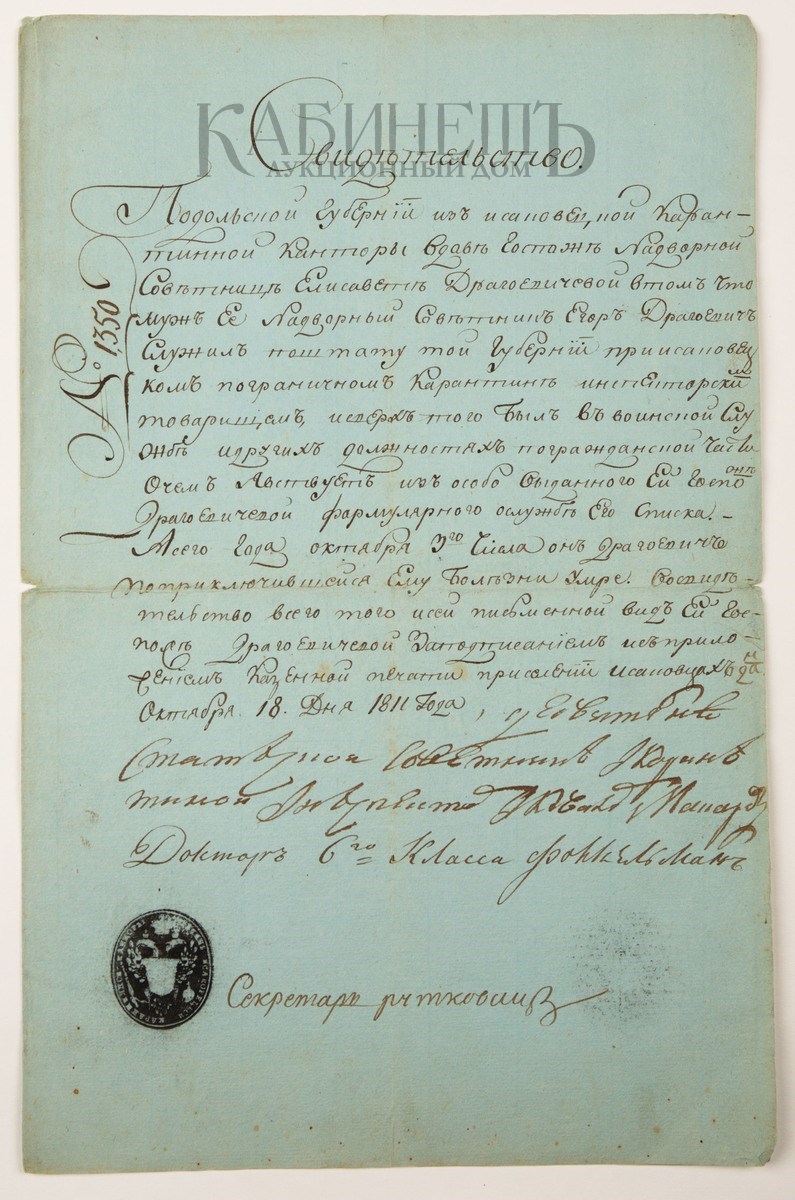 КАБИНЕТЪ
АУКЦИОННЫЙ ДОМ
Свидѣтельство.
№ 1,350
Подольской Губерніи изъ исаковецкой Каран-
тинной Канторы вдавѣ Госпожѣ Надворной
Совѣтницѣ Елисаветѣ Драгоевичевой втомъ что
мужъ Ее Надворный Совѣтникъ Егоръ Драгоевичъ
Служилъ поштату той Губерніи приисаковец
комъ пограничномъ Карантинѣ инспекторскимъ
товарищемъ, исверхъ того былъ въ воинской Слу
жбѣ идругихъ должностяхъ погражданской части
Очемъ Явствуетъ изъ особо выданного Ей Госпожѣ
Драгоевичевой формулярного ослужбѣ Его Списка.-
Асего Года октября 3го числа онъ Драгоевичъ
поприключившейся Ему Болѣзни Умре. Восвидѣ-
тельство всего того исей письменной видъ Ей Гос-
пожѣ Драгоевичевой Заподписаніемъ исъприло-
женіемъ Казенной печати приселеніи исаковцахъ данъ
Октября 18. Дня 1811 Года,
Статской Советникъ
Докторъ 6го Класса
Секретарь